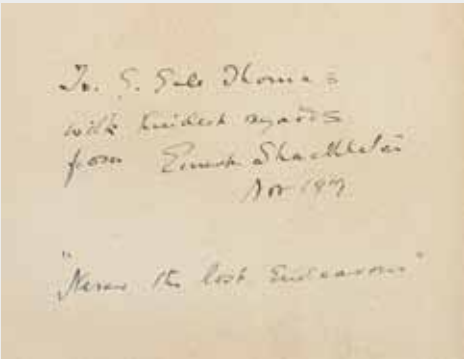 To. G. Gale Thomas
with kindest regards
from Ernest Shackleton
Nov 1917
"Never the lost Endeavour"